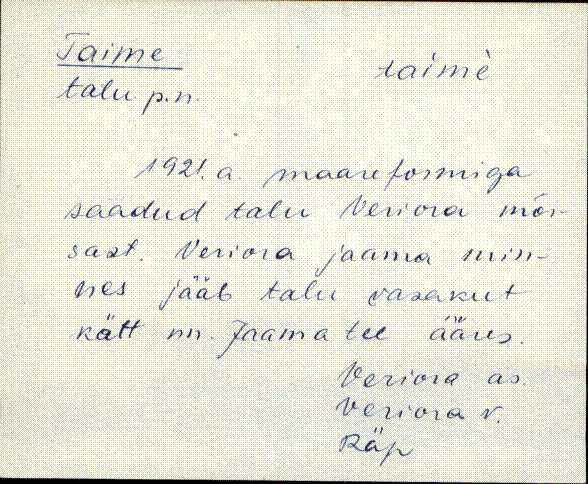 Taime
taimè
talu p.n.
1921. a. maareformiga
saadud talu Veriora mõi-
sast. Veriora jaama min-
nes jääb talu vasakut
kätt nn. Jaama tee ääres.
Veriora as.
Veriora v.
Räp